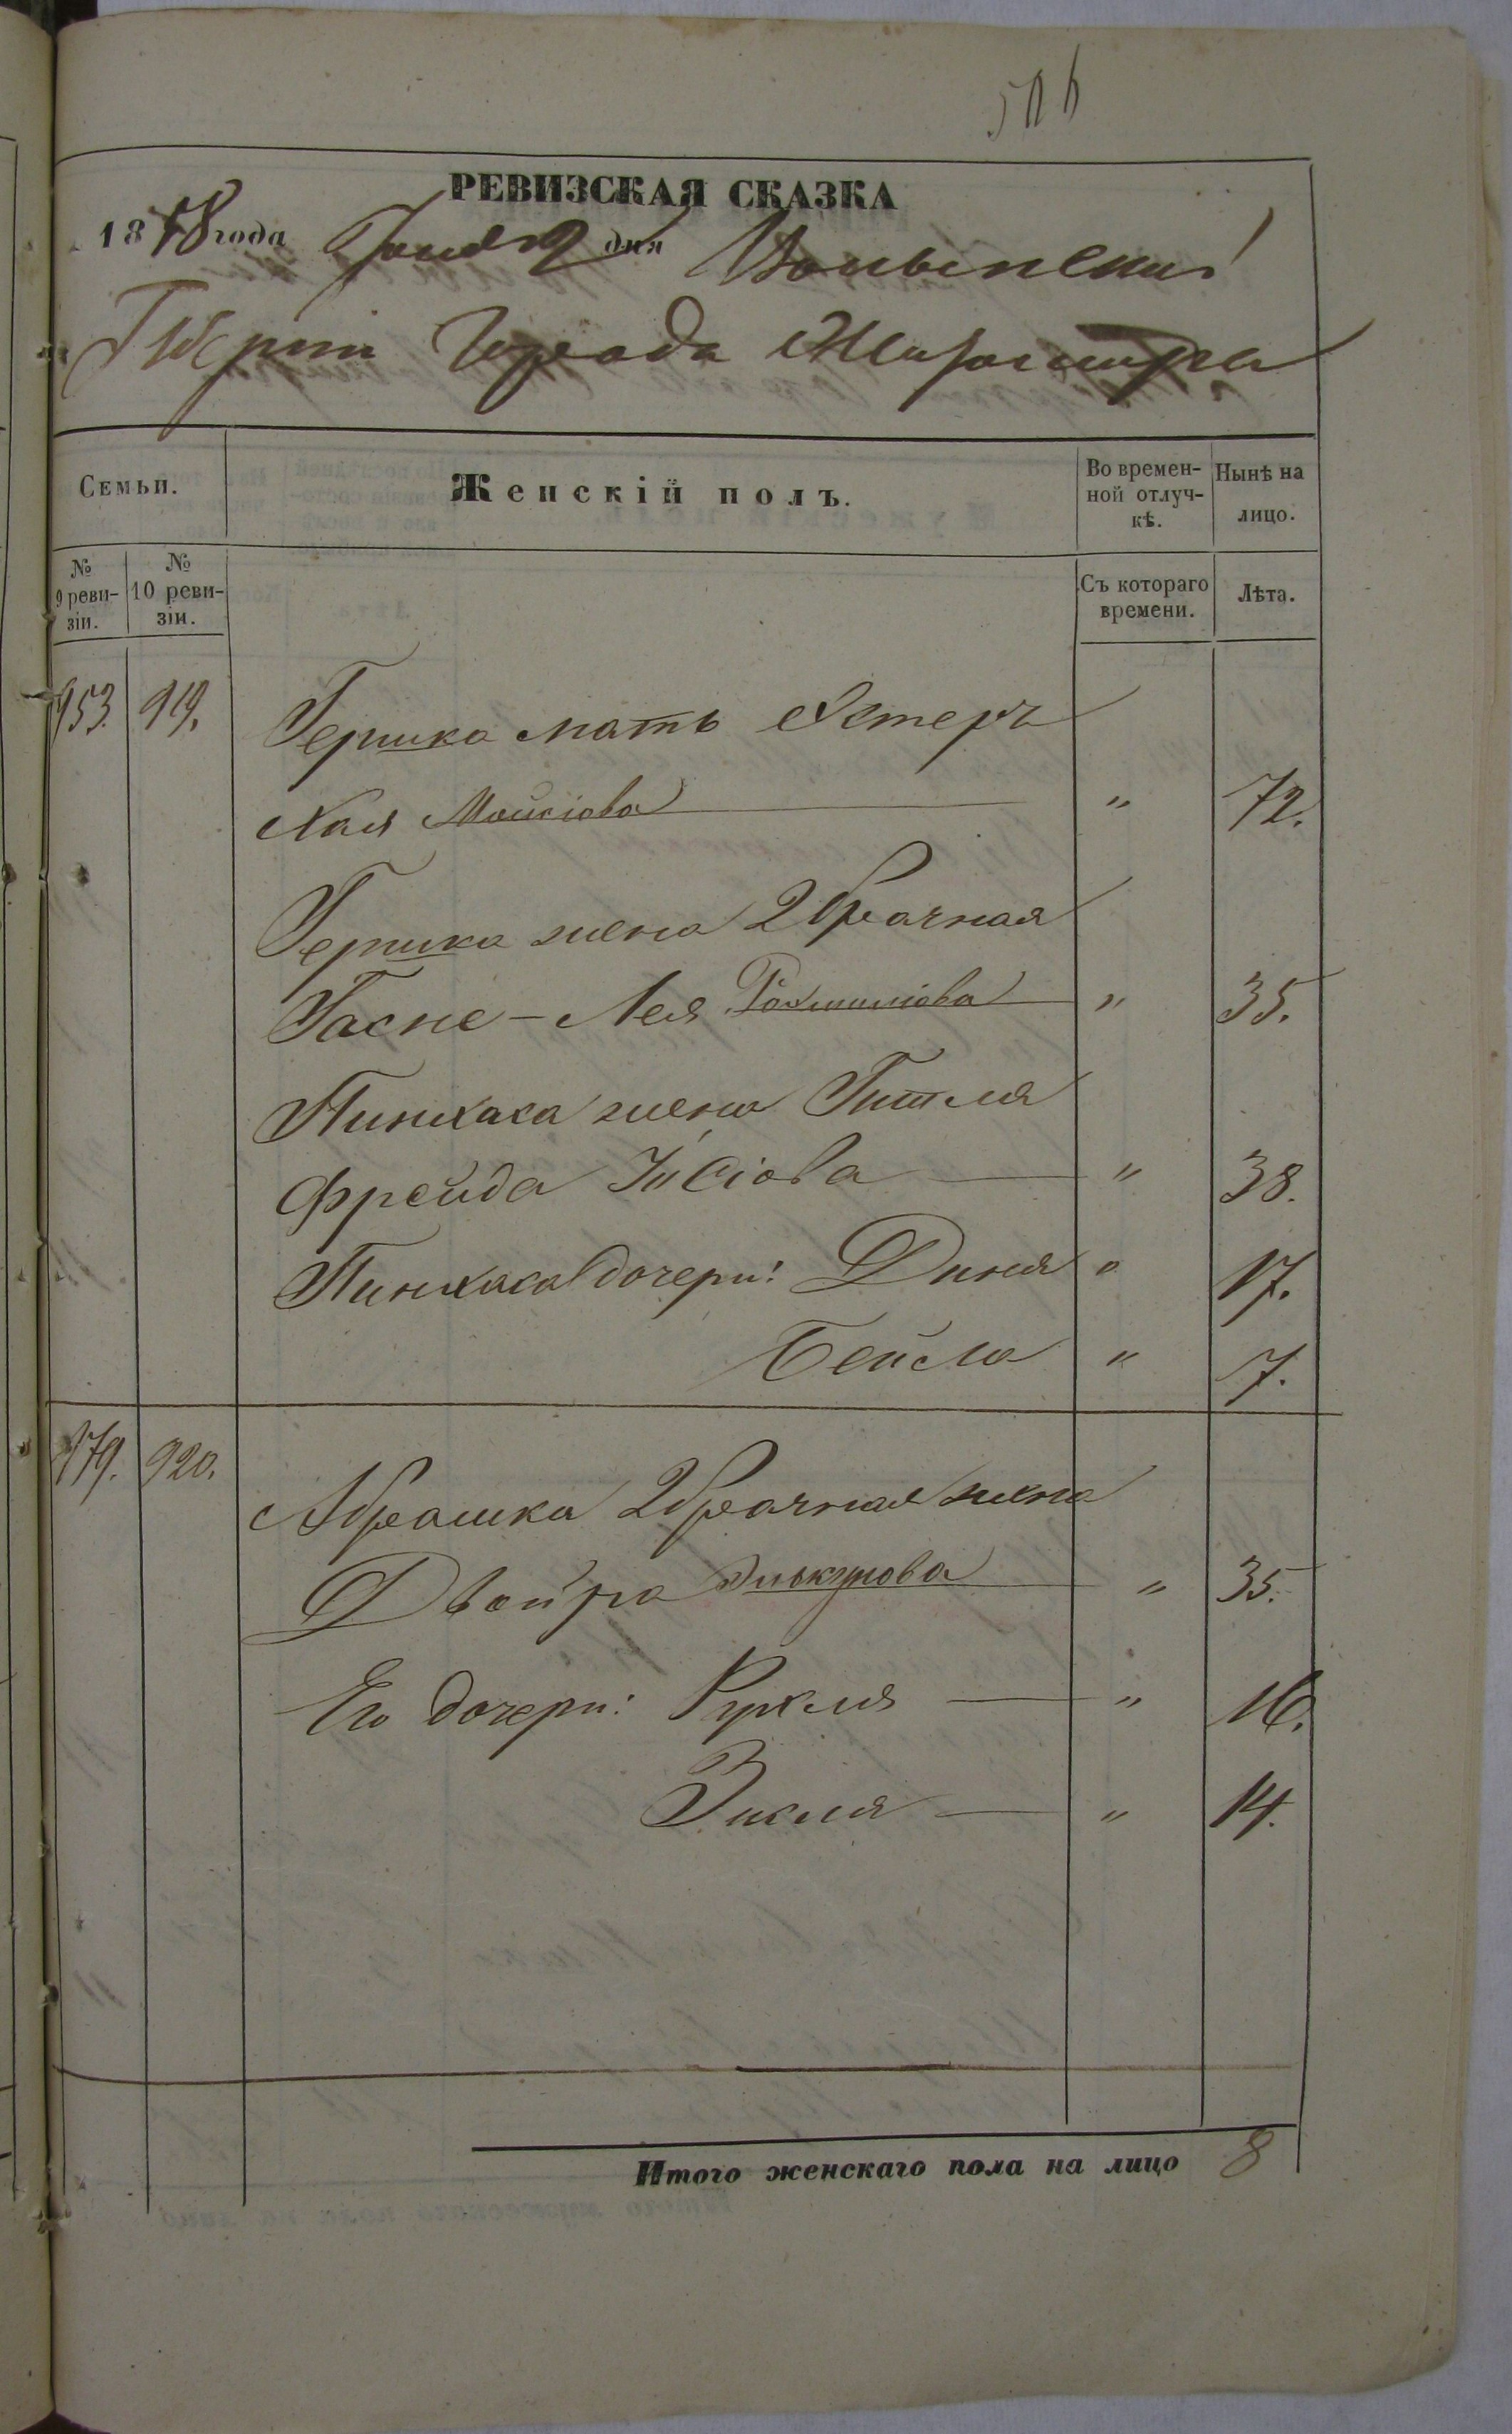 РЕВИЗСКАЯ СКАЗКА
1858 года дня Волынской
Губерніи Города Житомира
Семьи.
Женскій полъ.
Во времен-
ной отлуч-
кѣ.
Нынѣ на
лицо.
№
9 реви-
зіи.
№
10 реви-
зіи.
Съ котораго
времени.
Лѣта.
953. 919. Гершка мать Эстеръ
Хая Мойсіова " 72.
Гершка жена 2 брачная
Гасне-Лея Рахмиліова " 35.
Пинхаса жена Гитля
Фрейда Іосіова " 38.
Пинхаса дочери: Диня " 17.
Бейла " 7.
179. 920. Абрашка 2 брачная жена
Двойра " 35.
Его дочери: Рухля " 16.
Зисля " 14.
Итого женскаго пола на лицо 8